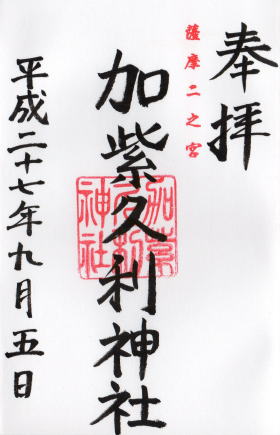 奉拝
薩摩二之宮
加紫久利神社
加紫久利神社
平成二十七年九月五日